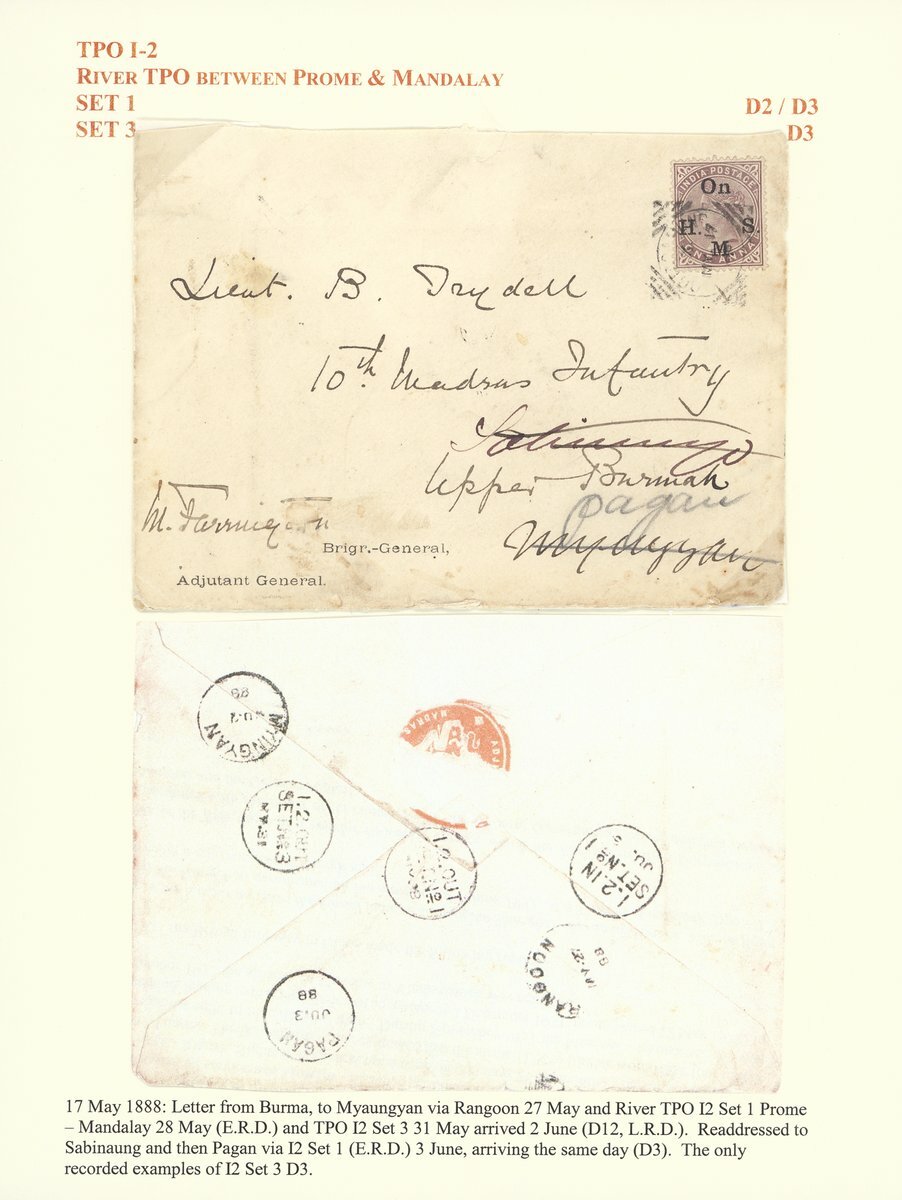 TPO I-2
RIVER TPO BETWEEN PROME & MANDALAY
SET 1
D2 / D3
SET 3
D3
INDIA POSTAGE
On
H. S
M
ONE ANNA
Lieut. B. Trydell
10th Madras Infantry
Upper Burmah
Pagan
Myaungyan
M. Farrington
Brigr.-General,
Adjutant General.
MYINGYAN
JU.2
88
MADRAS
ADJ
I.2.OUT
SET No 3
MY.31
I.2.OUT
SET No 1
I.2.IN
SET. No 1
JU.
RANGOON
MY.27
88
PAGAN
JU.3
88
17 May 1888: Letter from Burma, to Myaungyan via Rangoon 27 May and River TPO I2 Set 1 Prome
– Mandalay 28 May (E.R.D.) and TPO I2 Set 3 31 May arrived 2 June (D12, L.R.D.). Readdressed to
Sabinaung and then Pagan via I2 Set 1 (E.R.D.) 3 June, arriving the same day (D3). The only
recorded examples of I2 Set 3 D3.